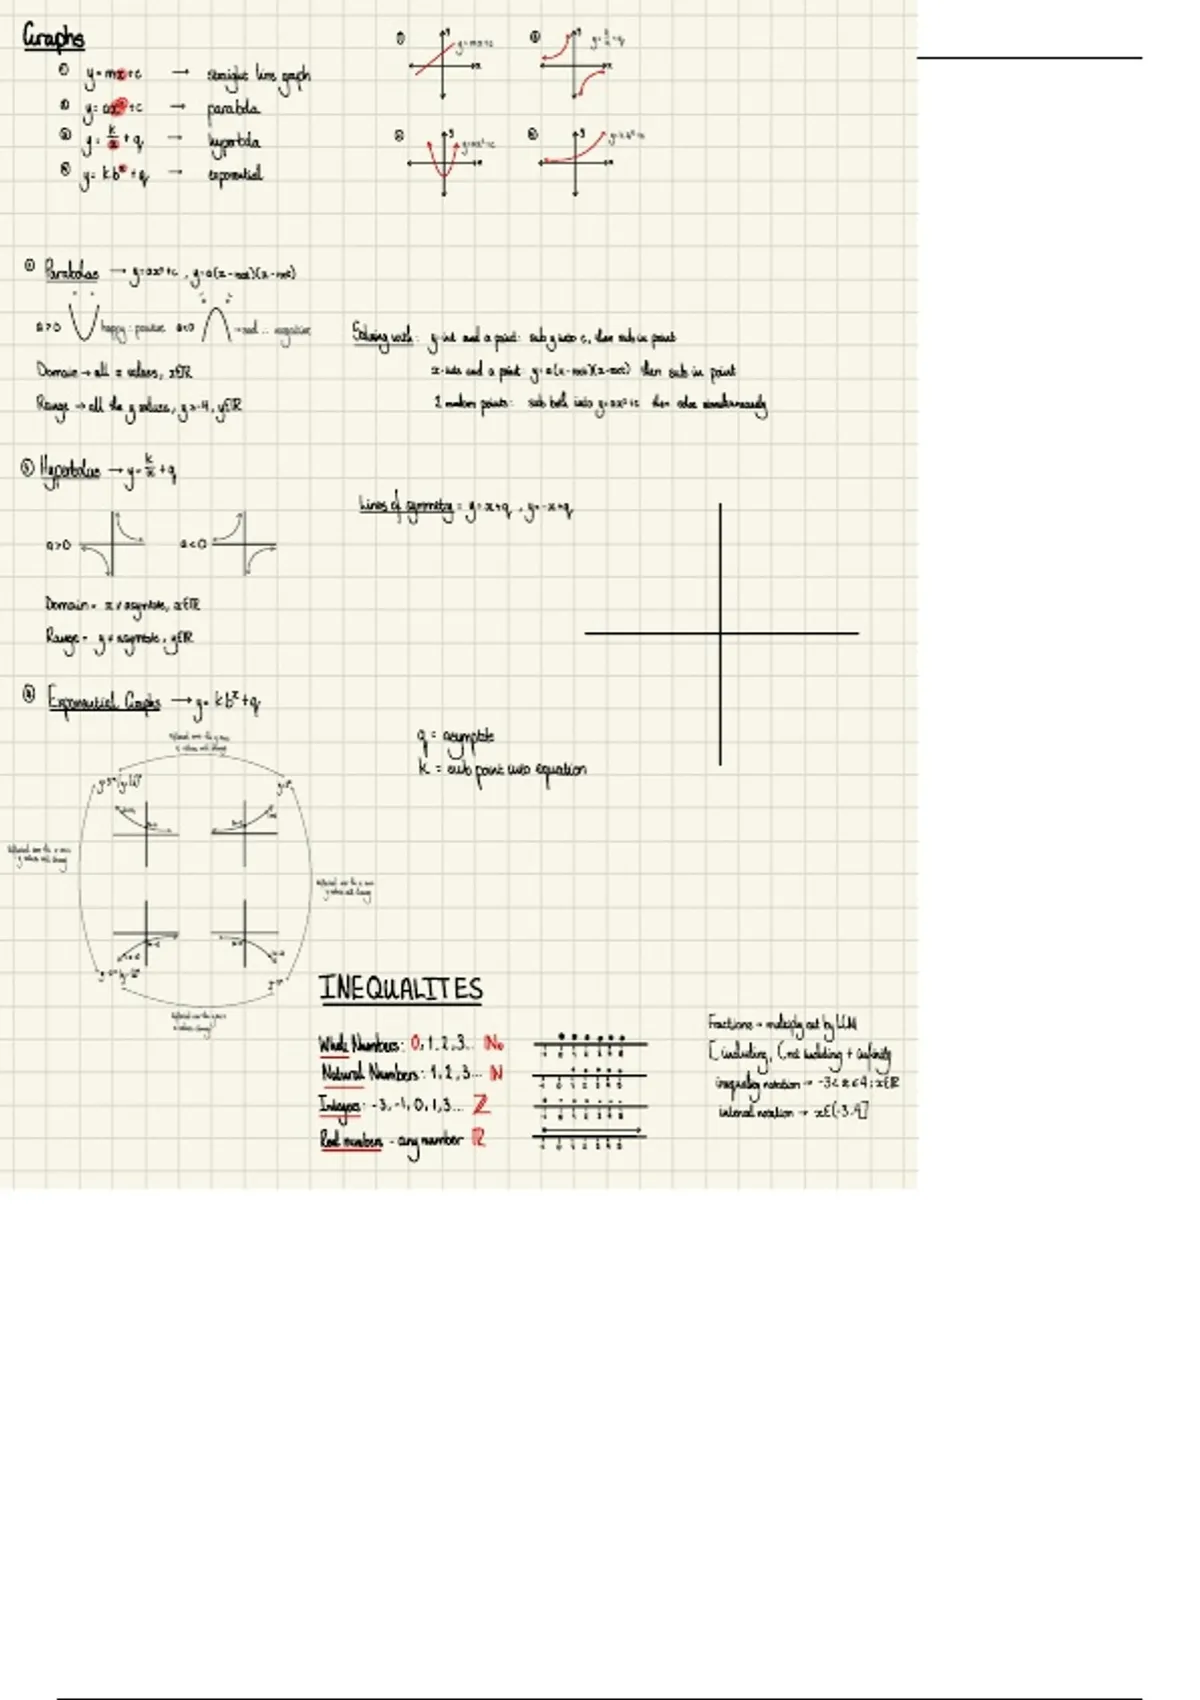 Graphs
① y = mx + c → straight line graph
② y = ax² + c → parabola
③ y = k/x + q → hyperbola
④ y = kb^x + q → exponential
① y y=mx+c x
③ y y=k/x+q x
② y y=ax²+c
④ y y=kb^x+q
Parabolas → y=ax²+c , y=a(x-root)(x-root)
a>0 happy ∴ positive a<0 → sad ∴ negative
Domain → all x values, x∈ℝ
Range → all the y values, y≥-4, y∈ℝ
Solving with: y-int and a point: sub y into c, then sub in point
x-ints and a point: y=a(x-root)(x-root) then sub in point
2 random points: sub both into y=ax²+c then solve simultaneously
③ Hyperbolas → y = k/x + q
a>0 a<0
Domain = x ≠ asymptote, x∈ℝ
Range = y ≠ asymptote, y∈ℝ
Lines of symmetry = y=x+q , y=-x+q
④ Exponential Graphs → y= kb^x+q
q = asymptote
k = sub point into equation
INEQUALITES
Whole Numbers: 0, 1, 2, 3... ℕ₀
Natural Numbers: 1, 2, 3... ℕ
Integers: -3, -1, 0, 1, 3... ℤ
Real numbers - any number ℝ
Fractions → multiply out by LCM
[ including, ( not including + infinity
inequality notation → -3<x≤4; x∈ℝ
interval notation → x∈(-3,4]